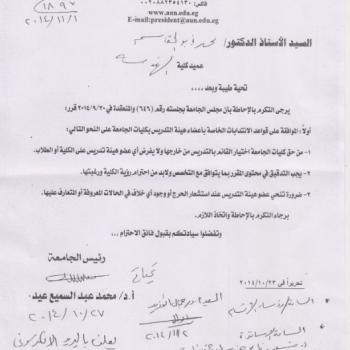 فاكس: ٠٠٢٠٨٨٢٣٥٤١٣٠
www.aun.edu.eg
E-mail:president@aun.edu.eg
١٨٩٦
٢٠١٤/١١/١
السيد الأستاذ الدكتور/
عميد كلية الهندسة
تحية طيبة وبعد ،،،،
يرجى التكرم بالإحاطة بأن مجلس الجامعة بجلسته رقم (٦٤٦) والمنعقدة في ٢٠١٤/٩/٢٠ قرر:
أولاً: الموافقة على قواعد الانتدابات الخاصة بأعضاء هيئة التدريس بكليات الجامعة على النحو التالي:
١- من حق كليات الجامعة اختيار القائم بالتدريس من خارجها ولا يفرض أي عضو هيئة تدريس على الكلية أو الطلاب.
٢- يجب التدقيق في محتوى المقرر بما يتوافق مع التخصص ولابد من احترام رؤية الكلية ورغبتها.
٣- ضرورة تنحي عضو هيئة التدريس عند استشعار الحرج أو وجود أي خلاف في الحالات المعروفة أو المتعارف عليها.
برجاء التكرم بالإحاطة واتخاذ اللازم.
وتفضلوا سيادتكم بقبول فائق الاحترام ،،،
رئيس الجامعة
تحريراً في ٢٠١٤/١٠/٢٣
أ.د/ محمد عبد السميع عيد
٢٠١٤/١٠/٢٧